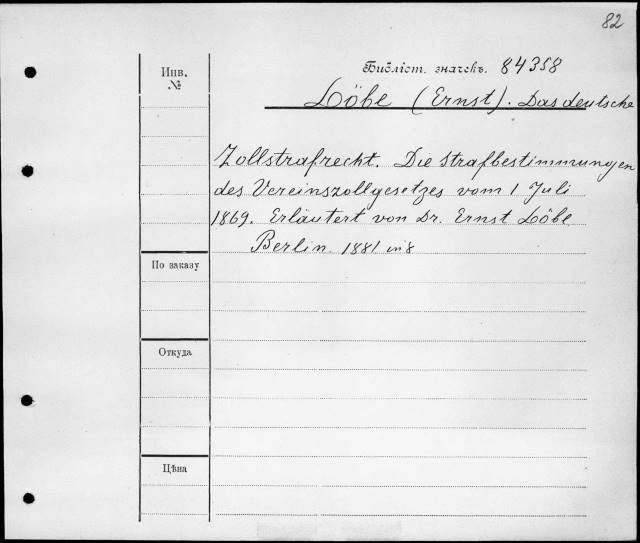 82
Инв.
№
Библіот. значекъ. 84358
Löbe (Ernst). Das deutsche
Zollstrafrecht. Die Strafbestimmungen
des Vereinszollgesetzes vom 1 Juli
1869. Erläutert von Dr. Ernst Löbe
Berlin. 1881 in 8
По заказу
Откуда
Цѣна